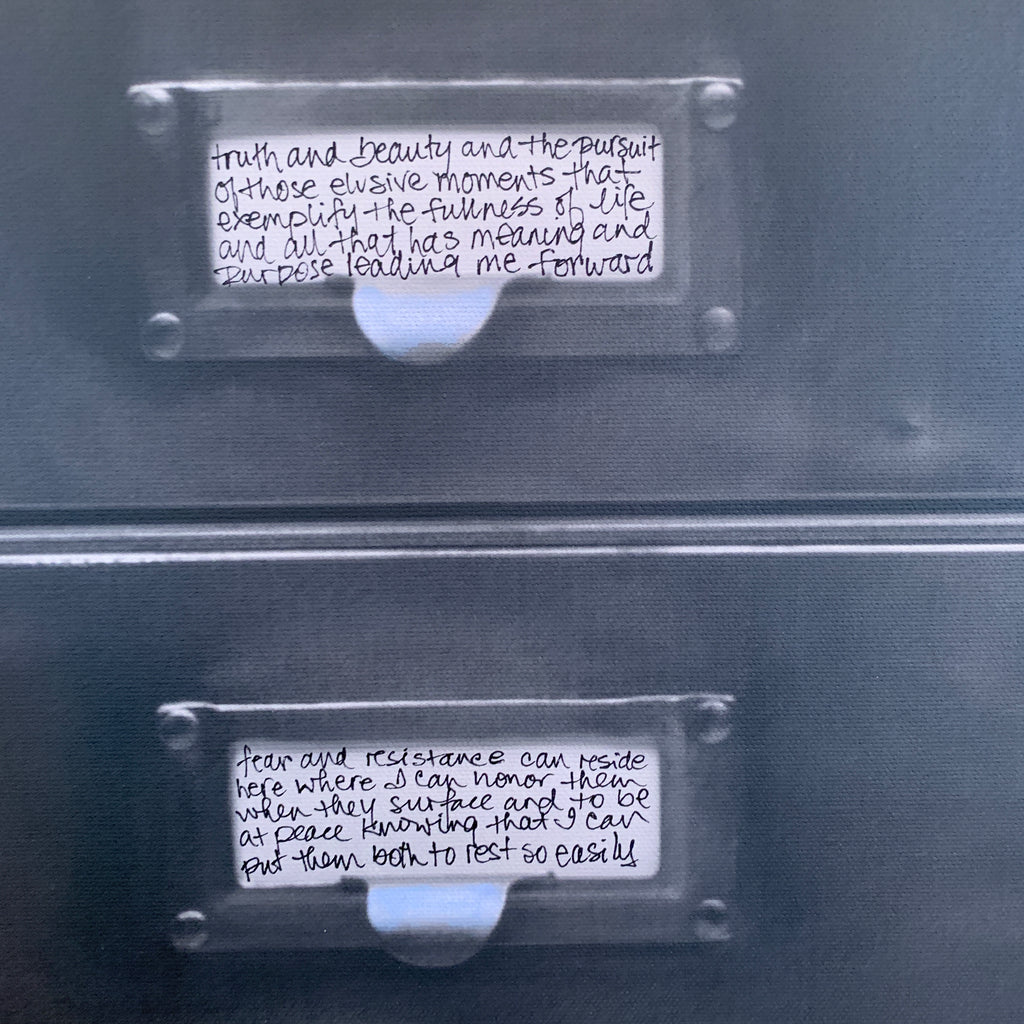 truth and beauty and the pursuit
of those elusive moments that
exemplify the fullness of life
and all that has meaning and
purpose leading me forward
fear and resistance can reside
here where I can honor them
when they surface and to be
at peace knowing that I can
put them both to rest so easily